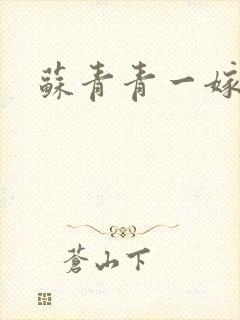 蘇青青一嫁
蒼山下